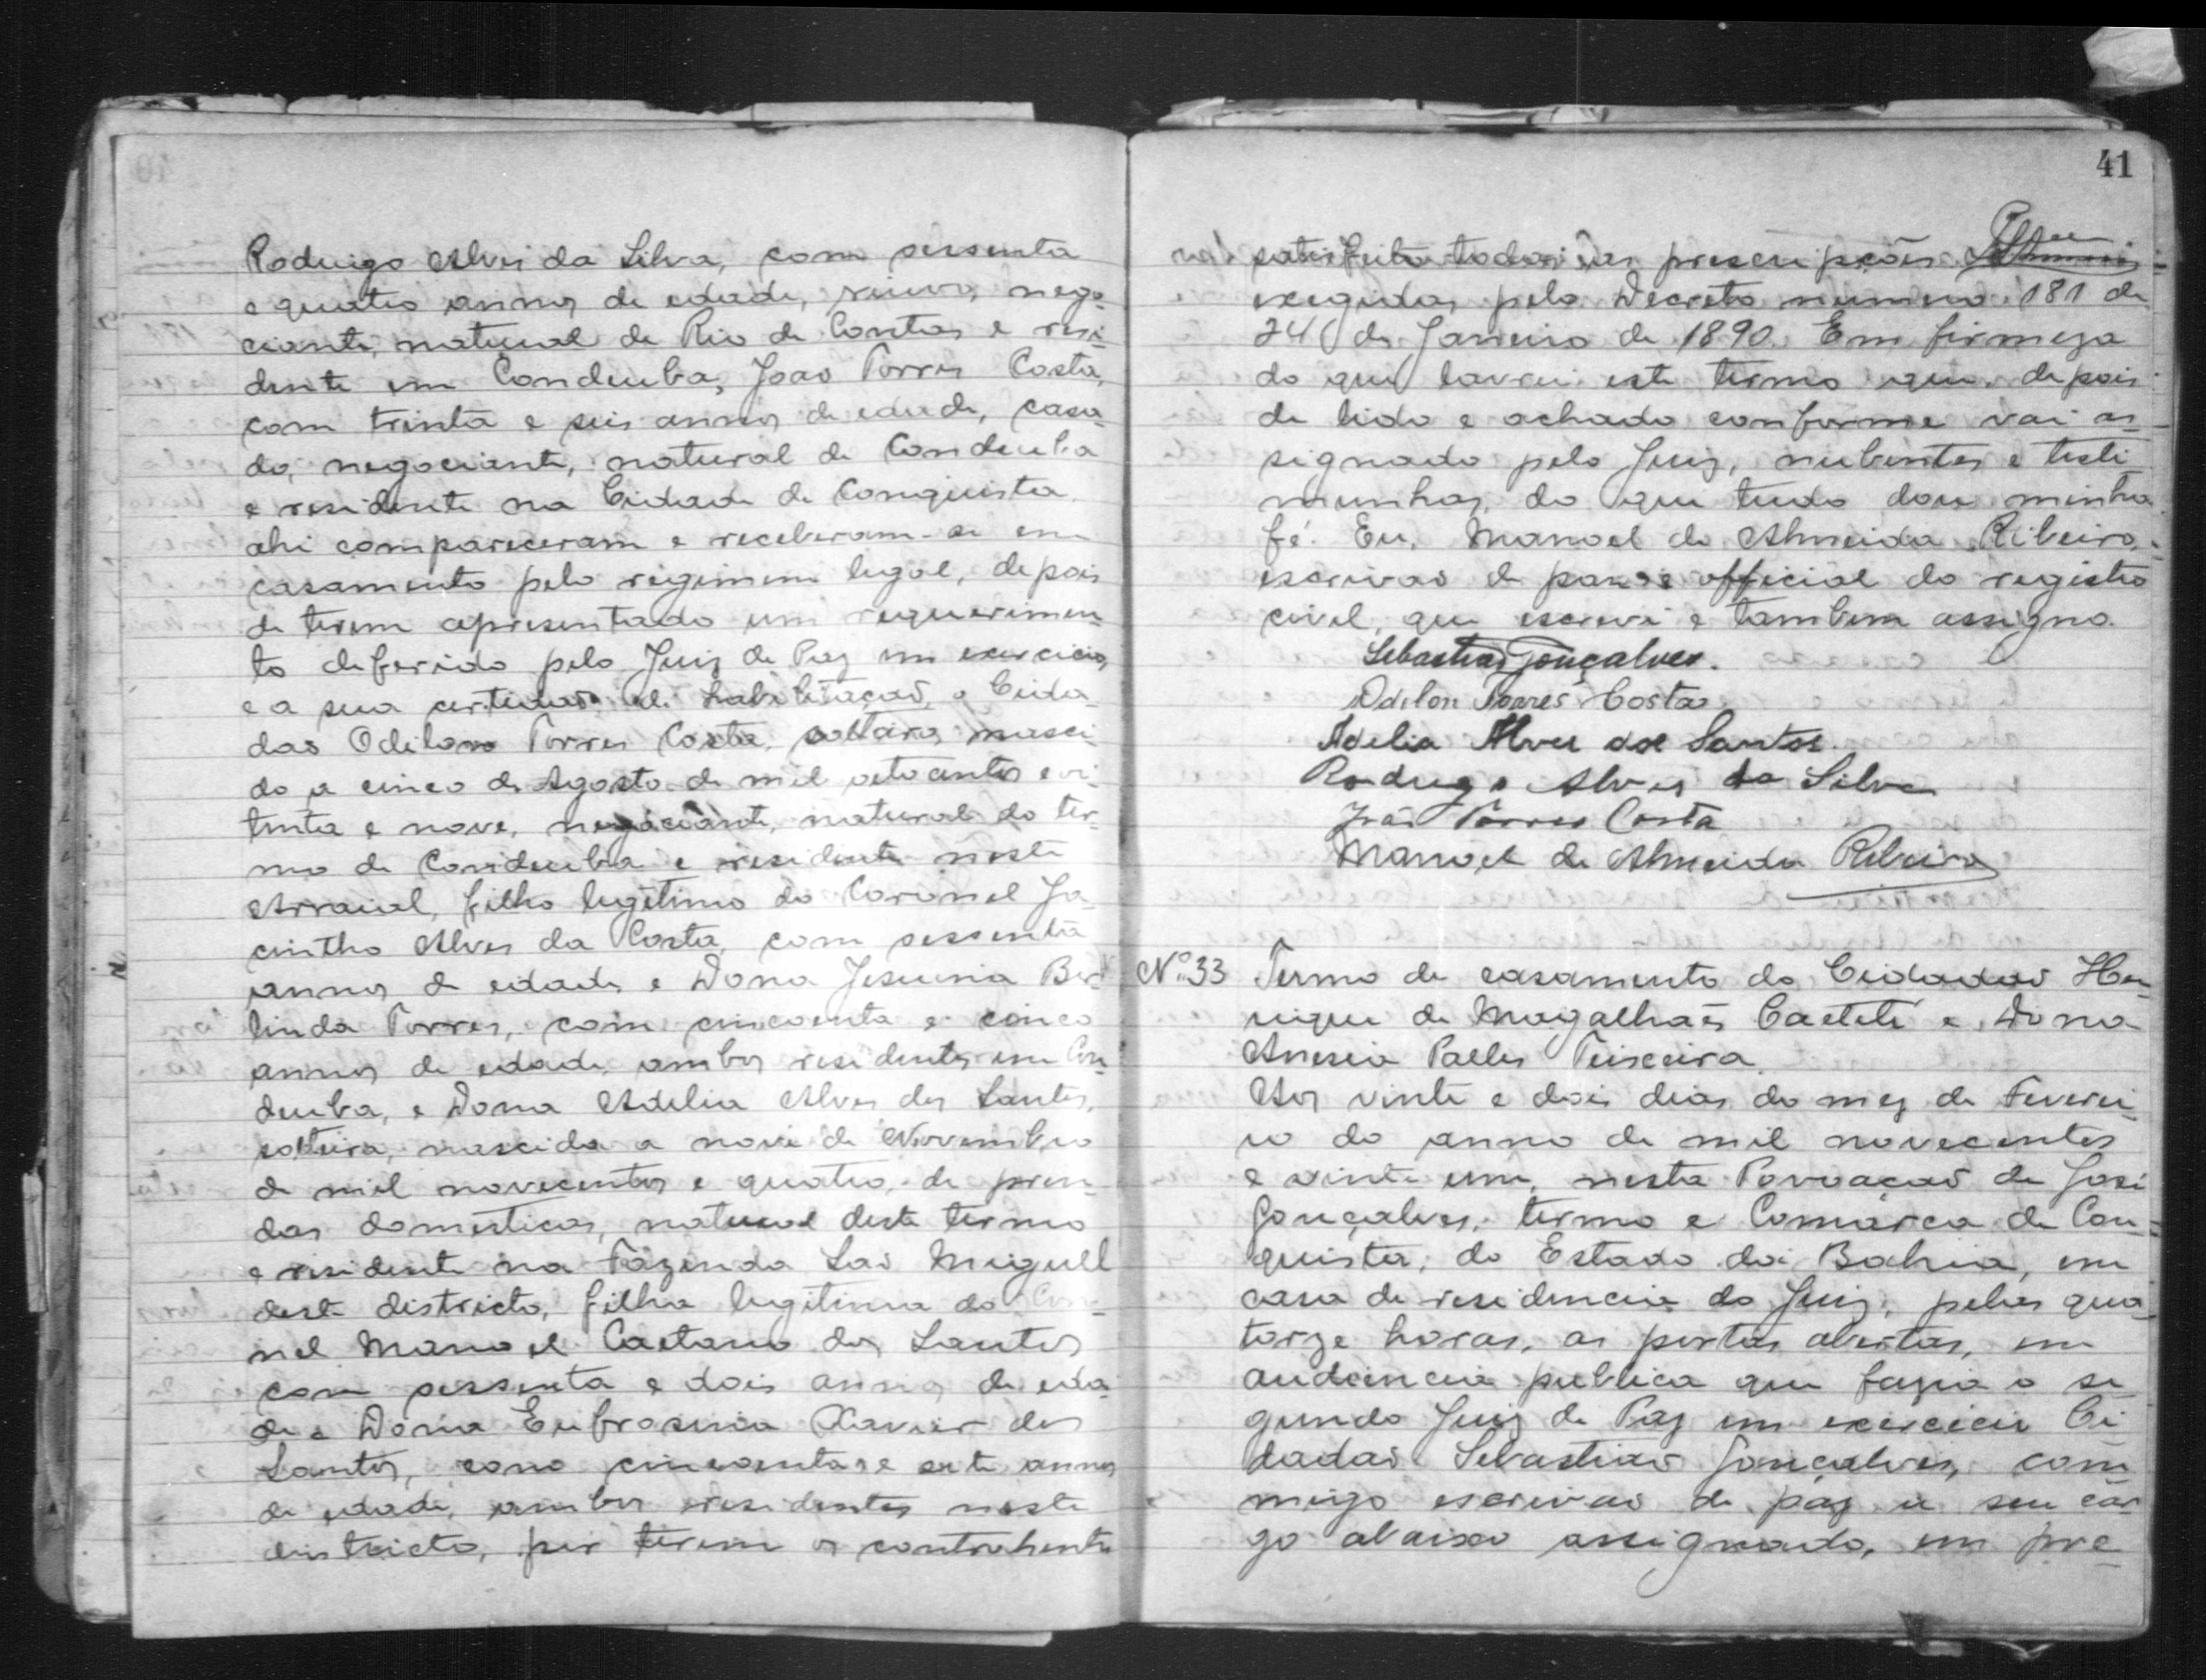 Rodrigo Alves da Silva, com sessenta
e quatro annos de edade, viuvo, nego-
ciante, natural de Rio de Contas e resi-
dente em Condeuba, Joao Torres Costa,
com trinta e seis annos de edade, casa-
do, negociante, natural de Condeuba
e residente na Cidade de Conquista
ahi compareceram e receberam-se em
casamento pelo regimem legal, depois
de terem apresentado um requerimen-
to deferido pelo Juiz de Paz em exercicio,
e a sua certidao de habilitaçaõ, o Cida-
dao Odilon Torres Costa, solteiro, nasci-
do a cinco de Agosto de mil oitocentos e
e nove, negociante, natural do ter-
mo de Condeuba e residente neste
Arraial, filho legitimo do Coronel Ja-
cintho Alves da Costa, com sessenta
annos de edade e Dona Jesuina
linda Torres, com cincoenta e cinco
annos de edade, ambos residentes em Con-
deuba, e Dona Adelia Alves dos Santos,
solteira, nascida a nove de Novembro
de mil novecentos e quatro, de pren-
das domesticas, natural deste termo
e residente na Fazenda Saõ Miguell
deste districto, filha legitima do
nel Manoel Caetano dos Santos
com sessenta e dois annos de eda-
de e Dona Eufrosina Xavier dos
Santos, com cincoenta e sete annos
de edade, ambos residentes neste
districto, por terem os contrahente
41
satisfeito todas as prescripções
exegidas pelo Decreto numero 181 de
24 de Janeiro de 1890. Em firmeza
do que lavrei este termo que, depois
de lido e achado conforme vai as-
signado pelo Juiz, nubentes e teste
munhas, do que tudo dou minha
fé. Eu, Manoel de Almeida Ribeiro,
escrivao de paz e official do registro
civel, que escrevi e tambem assigno.
Sebastiaõ Gonçalves.
Odilon Torres Costa
Adelia Alves dos Santos.
Rodrigo Alves da Silva
João Torres Costa
Manoel de Almeida Ribeiro
Nº 33 Termo de casamento do Cidadaõ Hen-
rique de Magalhães Caeteté e Dona
Anesia Teixeira.
Aos vinte e dois dias do mez de Feverei-
ro do anno de mil novecentos
e vinte um, nesta Povoaçaõ de José
Gonçalves, termo e Comarca de Con-
quista, do Estado da Bahia, em
casa de residencia do Juiz, pelas qua-
torze horas, as portas abertas, em
audeincia publica que fazia o se
gundo Juiz de Paz em exercicio Ci
dadaõ Sebastiaõ Gonçalves, com
migo escrivao de paz de seu car
go abaixo assignado, em pre-